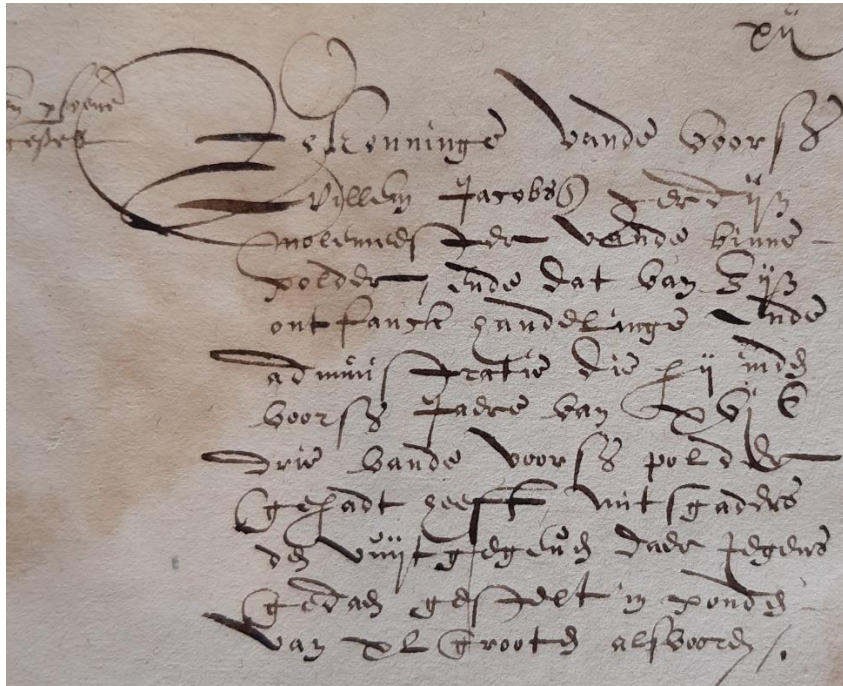 xij
Rekenninge vande voors
Willem Jacobs
molemeester vande binne
polder, ende dat van zijn
ontfanck handelinge ende
administratie die hij inden
voors Jaere van xvj C
drie vande voors polder
gehadt heeft, mitsgaders
den vuijtgegeven daer jegens
gedaen gestelt in ponden
van xl grooten als vooren /.